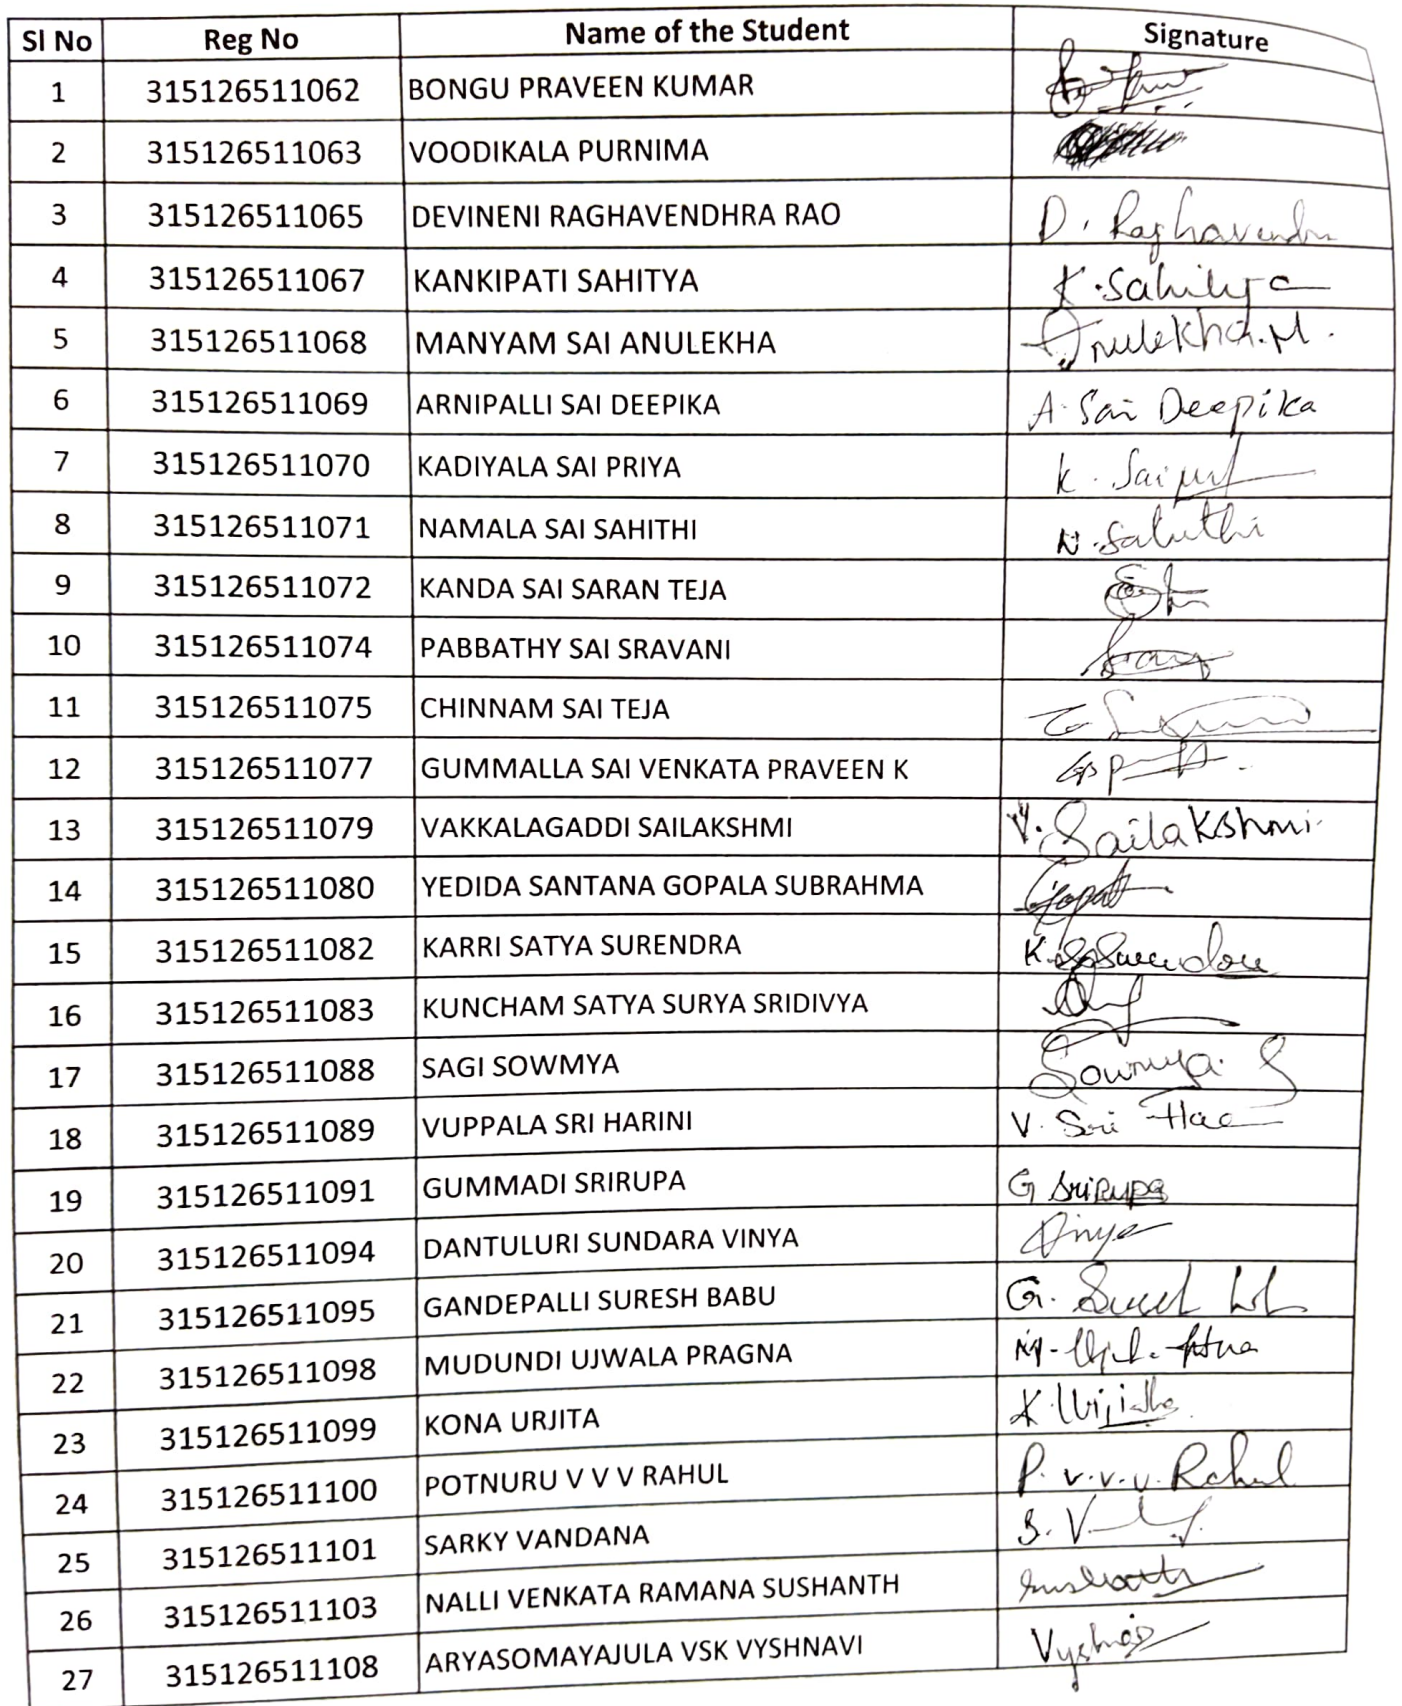 Sl No Reg No Name of the Student Signature
1 315126511062 BONGU PRAVEEN KUMAR
2 315126511063 VOODIKALA PURNIMA
3 315126511065 DEVINENI RAGHAVENDHRA RAO D. Raghavendra
4 315126511067 KANKIPATI SAHITYA K. Sahitya
5 315126511068 MANYAM SAI ANULEKHA Anulekha.M.
6 315126511069 ARNIPALLI SAI DEEPIKA A. Sai Deepika
7 315126511070 KADIYALA SAI PRIYA K. Sai
8 315126511071 NAMALA SAI SAHITHI N. Sahithi
9 315126511072 KANDA SAI SARAN TEJA
10 315126511074 PABBATHY SAI SRAVANI
11 315126511075 CHINNAM SAI TEJA
12 315126511077 GUMMALLA SAI VENKATA PRAVEEN K
13 315126511079 VAKKALAGADDI SAILAKSHMI V. Sailakshmi
14 315126511080 YEDIDA SANTANA GOPALA SUBRAHMA
15 315126511082 KARRI SATYA SURENDRA
16 315126511083 KUNCHAM SATYA SURYA SRIDIVYA
17 315126511088 SAGI SOWMYA Sowmya. S
18 315126511089 VUPPALA SRI HARINI V. Sri
19 315126511091 GUMMADI SRIRUPA G Srirupa
20 315126511094 DANTULURI SUNDARA VINYA Vinya
21 315126511095 GANDEPALLI SURESH BABU G.
22 315126511098 MUDUNDI UJWALA PRAGNA
23 315126511099 KONA URJITA K. Urjitha
24 315126511100 POTNURU V V V RAHUL P. v. v. v. Rahul
25 315126511101 SARKY VANDANA
26 315126511103 NALLI VENKATA RAMANA SUSHANTH
27 315126511108 ARYASOMAYAJULA VSK VYSHNAVI